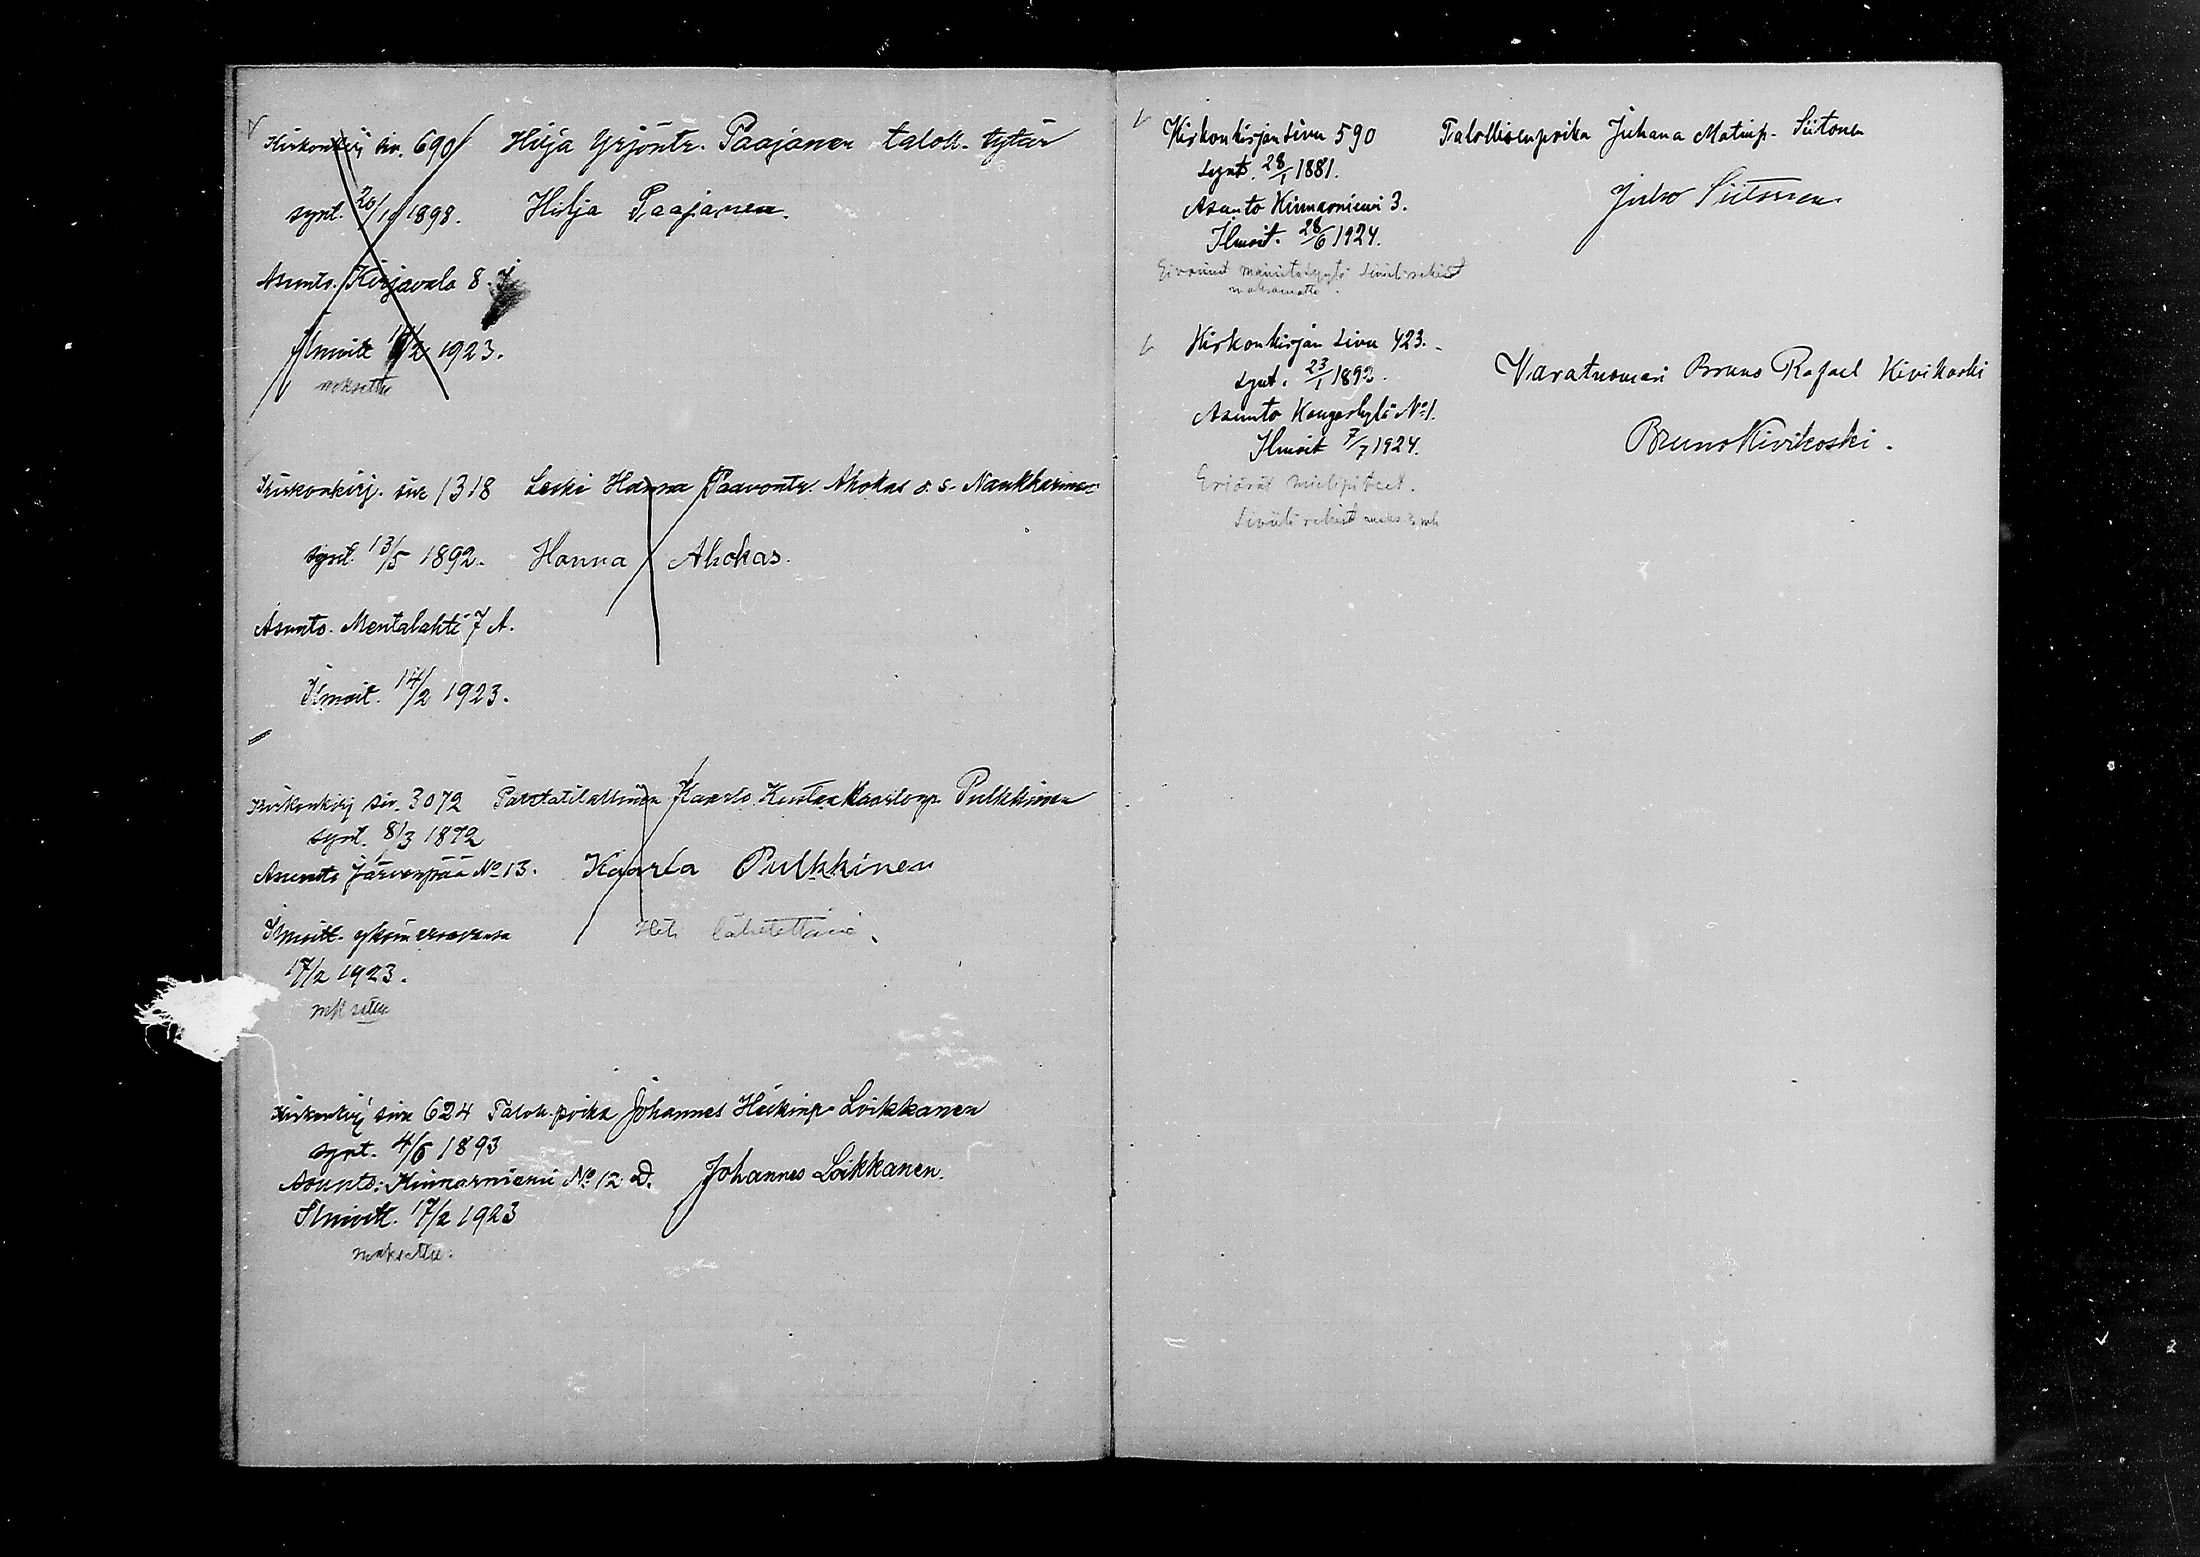 Kirkonkirj siv. 690 Hilja Yrjöntr. Paajanen taloll. tytär
synt. 20/10 1898. Hilja Paajanen.
Asunto. Kirjavala 8.
Ilmoitt 1923.
maksettu
Kirkonkirj. siv 1318 Leski Hanna Paavontr. Ahokas o. s. Naukkarinen
synt. 13/5 1892. Hanna Ahokas.
Asunto. Mentalahti 7 A.
Ilmoit. 14/2 1923.
Kirkonkirj siv. 3072 Palstatilallinen Kaarlo Kustaa Kaarlonp. Pulkkinen
synt. 8/3 1872
Asunto Järvenpää No 13. Kaarlo Pulkkinen
Ilmoitt.
17/2 1923.
Heti lähetettävä.
Kirkonkirj siva 624 Taloll. poika Johannes Heikinp. Loikkanen
synt. 4/6 1893
Asunto: Kinnarniemi No 12 D. Johannes Loikkanen.
Ilmoitt. 17/2 1923
maksettu.
Kirkonkirjan sivu 590 Talollisenpoika Juhana Matinp. Siitonen
synt. 28/1 1881.
Asunto Kinnarniemi 3. Juho Siitonen
Ilmoit. 28/6 1924.
Kirkonkirjan sivu 423. Varatuomari Bruno Rafael Kivikoski
synt. 23/1 1892.
Asunto Kangaskylä No 1.
Ilmoit 7/7 1924. Bruno Kivikoski.
Eriävät mielipiteet.